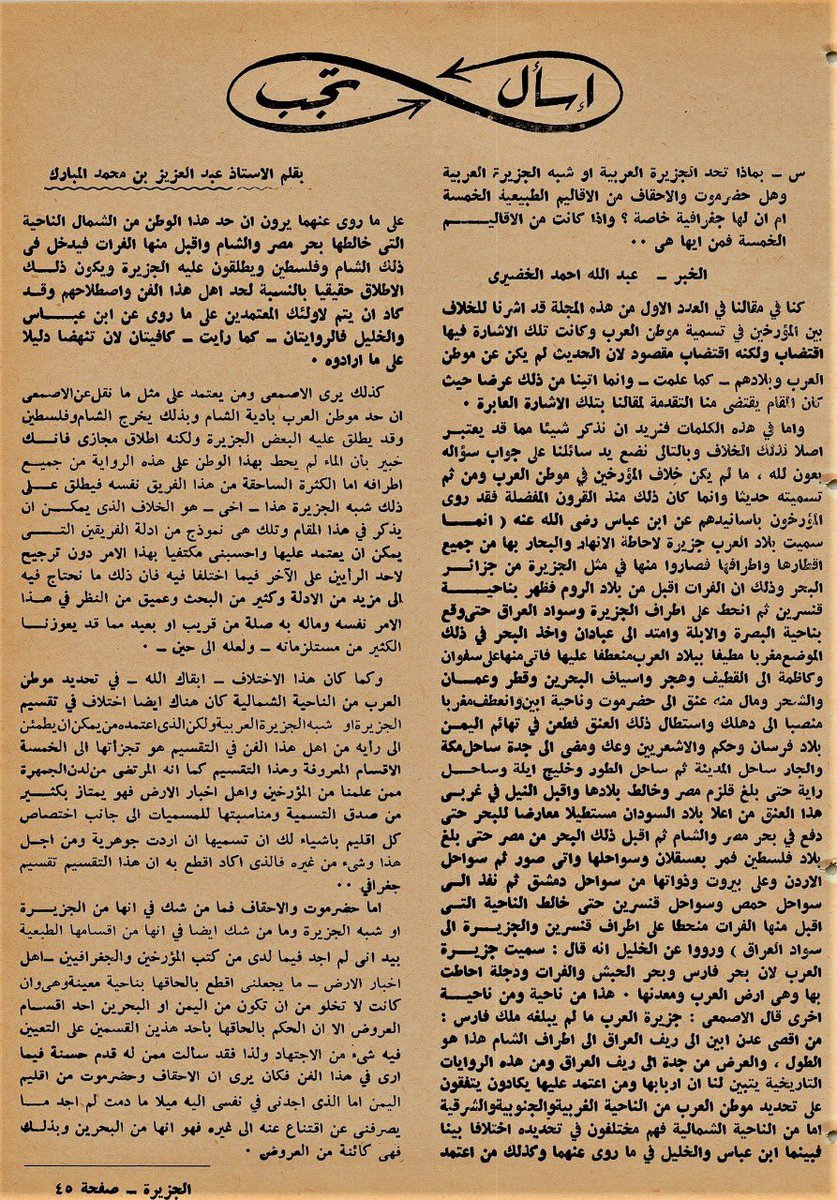 إسأل تجب
س ـ بماذا تحد الجزيرة العربية او شبه الجزيرة العربية
وهل حضرموت والاحقاف من الاقاليم الطبيعية الخمسة
ام ان لها جغرافية خاصة ؟ واذا كانت من الاقاليم
الخمسة فمن ايها هى ٠٠
الخبر ـ عبد الله احمد الخضيرى
كنا في مقالنا في العدد الاول من هذه المجلة قد اشرنا للخلاف
بين المؤرخين في تسمية موطن العرب وكانت تلك الاشارة فيها
اقتضاب ولكنه اقتضاب مقصود لان الحديث لم يكن عن موطن
العرب وبلادهم ـ كما علمت ـ وانما اتينا من ذلك عرضا حيث
كان المقام يقتضى منا التقدمة لمقالنا بتلك الاشارة العابرة ٠
واما في هذه الكلمات فنريد ان نذكر شيئا مما قد يعتبر
اصلا لذلك الخلاف وبالتالى نضع يد سائلنا على جواب سؤاله
بعون لله ، ما لم يكن خلاف المؤرخين في موطن العرب ومن ثم
تسميته حديثا وانما كان ذلك منذ القرون المفضلة فقد روى
المؤرخون باسانيدهم عن ابن عباس رضى الله عنه ( انما
سميت بلاد العرب جزيرة لاحاطة الانهار والبحار بها من جميع
اقطارها واطرافها فصاروا منها في مثل الجزيرة من جزائر
البحر وذلك ان الفرات اقبل من بلاد الروم فظهر بناحية
قنسرين ثم انحط على اطراف الجزيرة وسواد العراق حتى وقع
بناحية البصرة والابلة وامتد الى عبادان واخذ البحر في ذلك
الموضع مغربا مطيفا ببلاد العرب منعطفا عليها فاتى منها على سفوان
وكاظمة الى القطيف وهجر واسياف البحرين وقطر وعمان
والشحر ومال منه عنق الى حضرموت وناحية ابين وانعطف مغربا
منصبا الى دهلك واستطال ذلك العنق فطعن في تهائم اليمن
بلاد فرسان وحكم والاشعريين وعك ومضى الى جدة ساحل مكة
والجار ساحل المدينة ثم ساحل الطور وخليج ايلة وساحل
راية حتى بلغ قلزم مصر وخالط بلادها واقبل النيل في غربى
هذا العنق من اعلا بلاد السودان مستطيلا معارضا للبحر حتى
دفع في بحر مصر والشام ثم اقبل ذلك البحر من مصر حتى بلغ
بلاد فلسطين فمر بعسقلان وسواحلها واتى صور ثم سواحل
الاردن وعلى بيروت وذواتها من سواحل دمشق ثم نفذ الى
سواحل حمص وسواحل قنسرين حتى خالط الناحية التى
اقبل منها الفرات منحطا على اطراف قنسرين والجزيرة الى
سواد العراق ) ورووا عن الخليل انه قال : سميت جزيرة
العرب لان بحر فارس وبحر الحبش والفرات ودجلة احاطت
بها وهى ارض العرب ومعدنها ٠ هذا من ناحية ومن ناحية
اخرى قال الاصمعى : جزيرة العرب ما لم يبلغه ملك فارس :
من اقصى عدن ابين الى ريف العراق الى اطراف الشام هذا هو
الطول ، والعرض من جدة الى ريف العراق ومن هذه الروايات
التاريخية يتبين لنا ان اربابها ومن اعتمد عليها يكادون يتفقون
على تحديد موطن العرب من الناحية الغربية والجنوبية والشرقية
اما من الناحية الشمالية فهم مختلفون في تحديده اختلافا بينا
فبينما ابن عباس والخليل في ما روى عنهما وكذلك من اعتمد
بقلم الاستاذ عبد العزيز بن محمد المبارك
على ما روى عنهما يرون ان حد هذا الوطن من الشمال الناحية
التى خالطها بحر مصر والشام واقبل منها الفرات فيدخل فى
ذلك الشام وفلسطين ويطلقون عليه الجزيرة ويكون ذلك
الاطلاق حقيقيا بالنسبة لحد اهل هذا الفن واصطلاحهم وقد
كاد ان يتم لاولئك المعتمدين على ما روى عن ابن عباس
والخليل فالروايتان ـ كما رأيت ـ كافيتان لان تنهضا دليلا
على ما ارادوه ٠
كذلك يرى الاصمعى ومن يعتمد على مثل ما نقل عن الاصمعى
ان حد موطن العرب بادية الشام وبذلك يخرج الشام وفلسطين
وقد يطلق عليه البعض الجزيرة ولكنه اطلاق مجازى فانك
خبير بأن الماء لم يحط بهذا الوطن على هذه الرواية من جميع
اطرافه اما الكثرة الساحقة من هذا الفريق نفسه فيطلق على
ذلك شبه الجزيرة هذا ـ اخى ـ هو الخلاف الذى يمكن ان
يذكر في هذا المقام وتلك هى نموذج من ادلة الفريقين التى
يمكن ان يعتمد عليها واحسبنى مكتفيا بهذا الامر دون ترجيح
لاحد الرأيين على الآخر فيما اختلفا فيه فان ذلك ما نحتاج فيه
الى مزيد من الادلة وكثير من البحث وعميق من النظر في هذا
الامر نفسه وماله به صلة من قريب او بعيد مما قد يعوزنا
الكثير من مستلزماته ـ ولعله الى حين ـ ٠
وكما كان هذا الاختلاف ـ ابقاك الله ـ في تحديد موطن
العرب من الناحية الشمالية كان هناك ايضا اختلاف في تقسيم
الجزيرة او شبه الجزيرة العربية ولكن الذى اعتمده من يمكن ان يطمئن
الى رأيه من اهل هذا الفن في التقسيم هو تجزأتها الى الخمسة
الاقسام المعروفة وهذا التقسيم كما انه المرتضى من لدن الجمهرة
ممن علمنا من المؤرخين واهل اخبار الارض فهو يمتاز بكثير
من صدق التسمية ومناسبتها للمسميات الى جانب اختصاص
كل اقليم باشياء لك ان تسميها ان اردت جوهرية ومن اجل
هذا وشىء من غيره فالذى اكاد اقطع به ان هذا التقسيم تقسيم
جغرافي ٠٠
اما حضرموت والاحقاف فما من شك في انها من الجزيرة
او شبه الجزيرة وما من شك ايضا في انها من اقسامها الطبعية
بيد انى لم اجد فيما لدى من كتب المؤرخين والجغرافيين ـ اهل
اخبار الارض ـ ما يجعلنى اقطع بالحاقها بناحية معينة وهى وان
كانت لا تخلو من ان تكون من اليمن او البحرين احد اقسام
العروض الا ان الحكم بالحاقها بأحد هذين القسمين على التعيين
فيه شىء من الاجتهاد ولذا فقد سألت ممن له قدم حسنة فيما
ارى في هذا الفن فكان يرى ان الاحقاف وحضرموت من اقليم
اليمن اما الذى اجدنى في نفسى اليه ميلا ما دمت لم اجد ما
يصرفنى عن اقتناع عنه الى غيره فهو انها من البحرين وبذلك
فهى كائنة من العروض ٠
الجزيرة ـ صفحة ٤٥